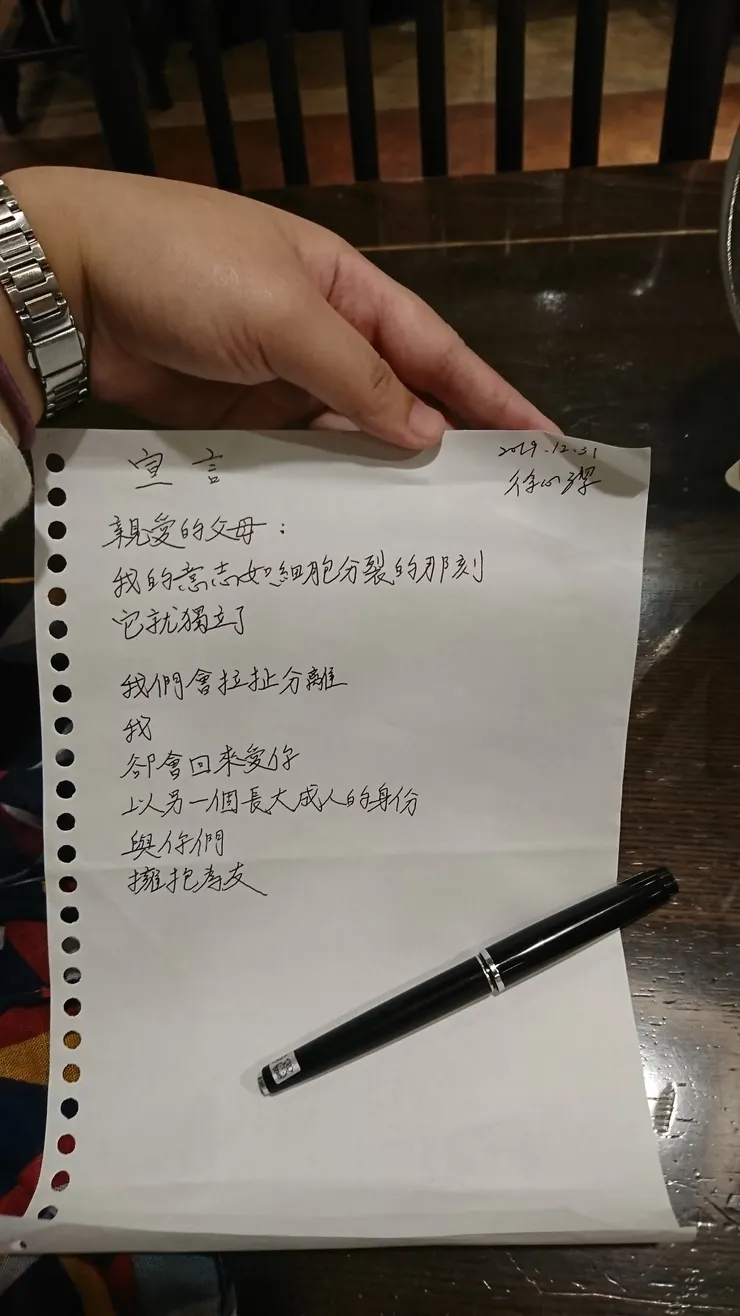 宣言
2019.12.31
徐心璆
親愛的父母：
我的意志如細胞分裂的那刻
它就獨立了
我們會拉扯分離
我
卻會回來愛你
以另一個長大成人的身份
與你們
擁抱為友